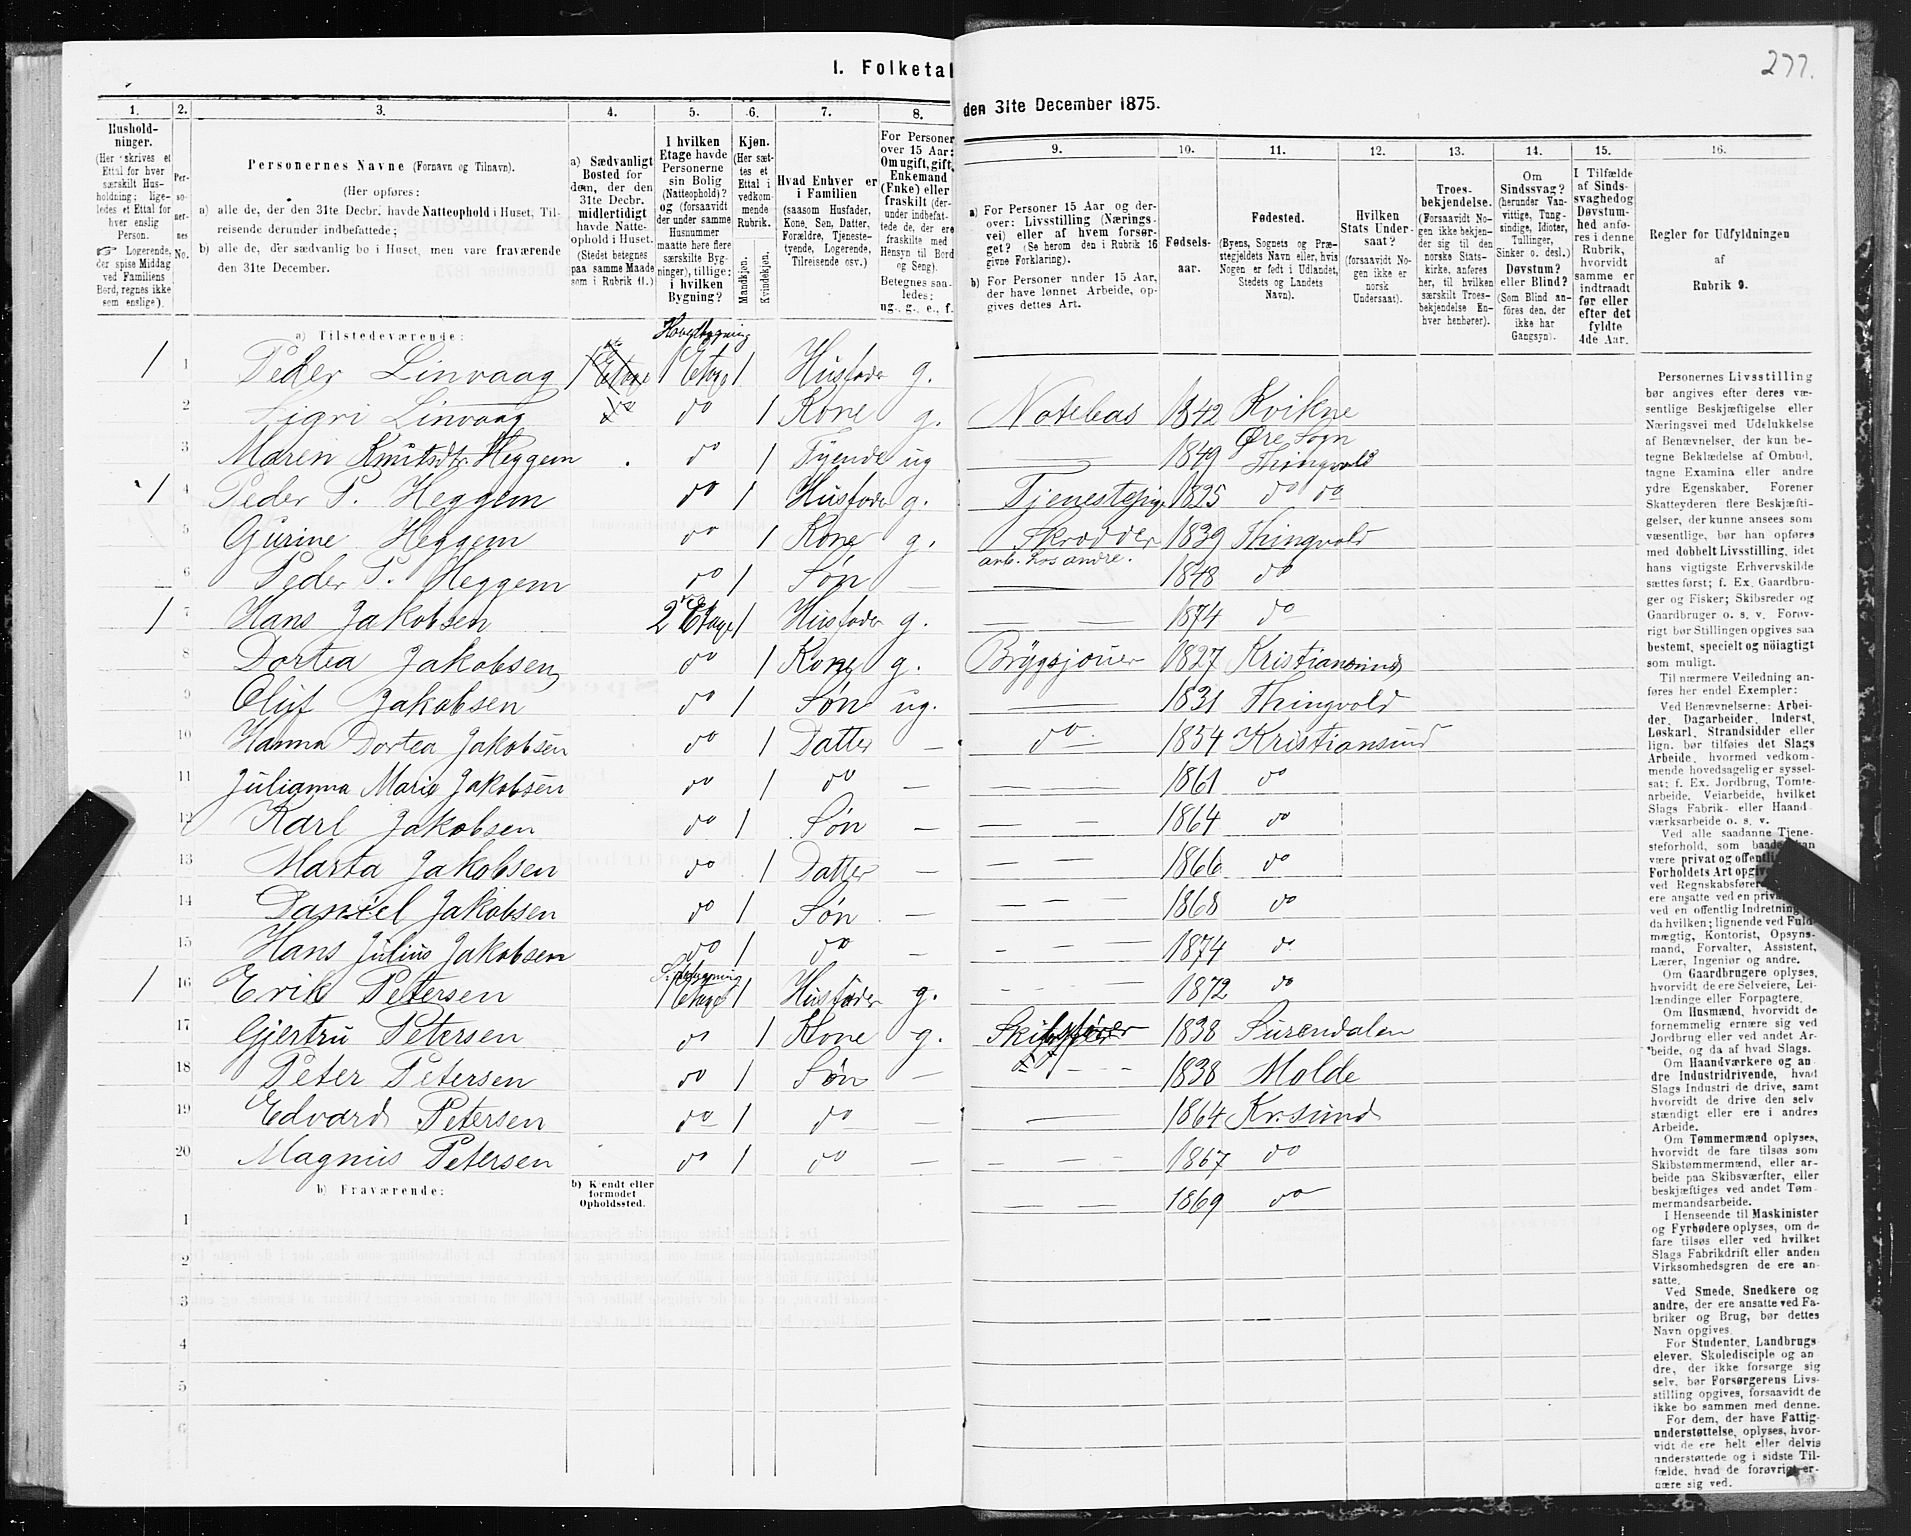 277.
I. Folketal
den 31te December 1875.
1. 2. 3. 4. 5. 6. 7. 8.
9. 10. 11. 12. 13. 14. 15. 16.
Hushold-
ninger.
(Her skrives et
Ettal for hver
særskilt Hus-
holdning; lige-
ledes et Ettal for
hver enslig
Person.
☞ Logerende,
der spise Middag
ved Familiens
Bord, regnes ikke
som enslige).
Per-
so-
ner-
nes
No.
Personernes Navne (Fornavn og Tilnavn).
(Her opføres:
a) alle de, der den 31te Decbr. havde Natteophold i Huset, Til-
reisende derunder indbefattede;
b) alle de, der sædvanlig bo i Huset, men vare fraværende
den 31te December.
a) Sædvanligt
Bosted for
dem, der den
31te Decbr.
midlertidigt
havde Natte-
ophold i Huset.
(Stedet betegnes
paa samme Maade
som i Rubrik 11.)
I hvilken
Etage havde
Personerne
sin Bolig
(Natteophold)?
og (forsaavidt
der under samme
Husnummer
maatte være flere
særskilte Byg-
ninger), tillige:
i hvilken
Bygning?
Kjøn.
(Her sæt-
tes et
Ettal i
vedkom-
mende
Rubrik.)
Mandkjøn.
Kvindekjøn.
Hvad Enhver er
i Familien
(saasom Husfader,
Kone, Søn, Datter,
Forældre, Tjeneste-
tyende, Logerende,
Tilreisende osv.)
For Personer
over 15 Aar:
Om ugift, gift,
Enkemand
(Enke) eller
fraskilt (der-
under indbefat-
tede de, der ere
fraskilte med
Hensyn til Bord
og Seng).
Betegnes saa-
ledes:
ug., g., e., f.
a) For Personer 15 Aar og der-
over: Livsstilling (Nærings-
vei) eller af hvem forsør-
get? (Se herom den i Rubrik 16
givne Forklaring).
b) For Personer under 15 Aar,
der have lønnet Arbeide, op-
gives dettes Art.
Fødsels-
aar.
Fødested.
(Byens, Sognets og Præ-
stegjeldets Navn eller, hvis
Nogen er født i Udlandet,
Stedets og Landets
Navn).
Hvilken
Stats Under-
saat?
(forsaavidt No-
gen ikke er
norsk
Undersaat).
Troes-
bekjendelse.
(Forsaavidt No-
gen ikke bekjen-
der sig til den
norske Stats-
kirke, anføres
her, til hvilken
særskilt Troes-
bekjendelse En-
hver henhører).
Om
Sindssvag?
(herunder Van-
vittige, Tung-
sindige, Idioter,
Tullinger,
Sinker o. desl.)
Døvstum?
eller Blind?
(Som Blind an-
føres den, der
ikke har
Gangsyn).
I Tilfælde
af Sinds-
svaghed og
Døvstum-
hed anfø-
res i denne
Rubrik,
hvorvidt
samme er
indtraadt
før eller
efter det
fyldte
4de Aar.
Regler for Udfyldningen
af
Rubrik 9.
a) Tilstedeværende:
Hovedbygning
1 1 Peder Linvaag 1 Etage 1 Etage 1 Husfader g.
2 Sigri Linvaag do do 1 Kone g. Notebas 1842 Kvikne
3 Maren Knutsdtr Heggem do 1 Tyende ug 1849 Øre Sogn Thingvold
1 4 Peder P. Heggem do 1 Husfader g. Tjenestepige 1825 do do
5 Gurine Heggem do 1 Kone g. Skrædder arb. hos andre. 1839 Thingvold
6 Peder P. Heggem do 1 Søn 1848 do
1 7 Hans Jakobsen 2 Etage 1 Husfader g. 1874 do
8 Dortea Jakobsen do 1 Kone g. Bryggsjouer 1827 Kristiansund
9 Oluf Jakobsen do 1 Søn ug. 1831 Thingvold
10 Hanna Dortea Jakobsen do 1 Datter do 1854 Kristiansund
11 Julianna Marie Jakobsen do 1 do 1861 do
12 Karl Jakobsen do 1 Søn 1864 do
13 Marta Jakobsen do 1 Datter 1866 do
14 Daniel Jakobsen do 1 Søn 1868 do
15 Hans Julius Jakobsen do 1 do 1874 do
Sidebygning
1 16 Erik Petersen 1 Etage 1 Husfader g. 1872 do
17 Gjertru Petersen do 1 Kone g. Skibsfører 1838 Surendalen
18 Peter Petersen do 1 Søn 1838 Molde
19 Edvard Petersen do 1 do 1864 Kr.sund
20 Magnus Petersen do 1 do 1867 do
1869 do
b) Fraværende:
b) Kjendt eller
formodet
Opholdssted.
1
2
3
4
5
6
Personernes Livsstilling
bør angives efter deres væ-
sentlige Beskjæftigelse eller
Næringsvei med Udelukkelse
af Benævnelser, der kun be-
tegne Beklædelse af Ombud,
tagne Examina eller andre
ydre Egenskaber. Forener
Skatteyderen flere Beskjæfti-
gelser, der kunne ansees som
væsentlige, bør han opføres
med dobbelt Livsstilling, idet
hans vigtigste Erhvervskilde
sættes først; f. Ex. Gaardbru-
ger og Fisker; Skibsreder og
Gaardbruger o. s. v. Forøv-
rigt bør Stillingen opgives saa
bestemt, specielt og nøiagtigt
som muligt.
Til nærmere Veiledning an-
føres her endel Exempler:
Ved Benævnelserne: Arbei-
der, Dagarbeider, Inderst,
Løskarl, Strandsidder eller
lign. bør tilføies det Slags
Arbeide, hvormed vedkom-
mende hovedsagelig er syssel-
sat; f. Ex. Jordbrug, Tomte-
arbeide, Veiarbeide, hvilket
Slags Fabrik- eller Haand-
værksarbeide o. s. v.
Ved alle saadanne Tjene-
steforhold, som baade kan
være privat og offentli
Forholdets Art opgiv
ved Regnskabsføre
ere ansatte ved en priva
ved en offentlig Indretning
da hvilken; lignende ved Fuld-
mægtig, Kontorist, Opsyns-
mand, Forvalter, Assistent,
Lærer, Ingeniør og andre.
Om Gaardbrugere oplyses,
hvorvidt de ere Selveiere, Lei-
lændinge eller Forpagtere.
Om Husmænd, hvorvidt de
fornemmelig ernære sig ved
Jordbrug eller ved andet Ar-
beide, og da af hvad Slags.
Om Haandværkere og an-
dre Industridrivende, hvad
Slags Industri de drive, samt
hvorvidt de drive den selv-
stændigt eller ere i andres
Arbeide.
Om Tømmermænd oplyses,
hvorvidt de fare tilsøs som
Skibstømmermænd, eller ar-
beide paa Skibsværfter, eller
beskjæftiges ved andet Tøm-
mermandsarbeide.
I Henseende til Maskinister
og Fyrbødere oplyses, om de
fare tilsøs eller ved hvilket
Slags Fabrikdrift eller anden
Virksomhedsgren de ere an-
satte.
Ved Smede, Snedkere og
andre, der ere ansatte ved Fa-
briker og Brug, bør dettes
Navn opgives.
For Studenter, Landbrugs-
elever, Skoledisciple og an-
dre, der ikke forsørge sig
selv, bør Forsørgerens Livs-
stilling opgives, forsaavidt de
ikke bo sammen med denne.
For dem, der have Fattig-
understøttelse, oplyses, hvor-
vidt de ere helt eller delvis
understøttede og i sidste Til-
fælde, hvad de forøvrigt er-
nære sig ved.